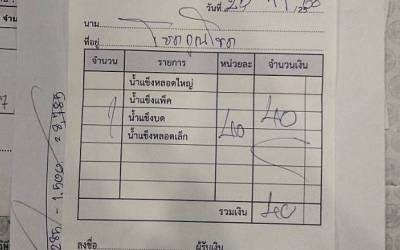 วันที่ 29
นาม
ที่อยู่ โชคคูณโชค
จำนวน รายการ หน่วยละ จำนวนเงิน
น้ำแข็งหลอดใหญ่
น้ำแข็งแพ็ค
1 น้ำแข็งบด 40 40
น้ำแข็งหลอดเล็ก
รวมเงิน 40
ลงชื่อ ผู้รับเงิน
285 - 1.500 = 8,785